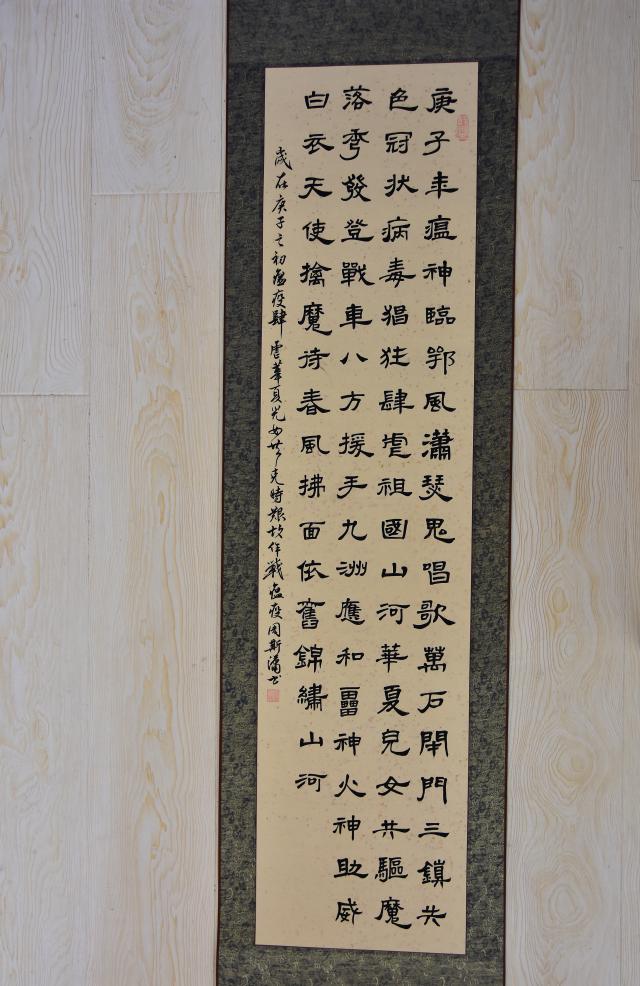 庚子年瘟神臨鄂風瀟瑟鬼唱歌萬戶閉門三鎮失
色冠狀病毒猖狂肆虐祖國山河華夏兒女共驅魔
落秀發登戰車八方援手九洲應和雷神火神助威
白衣天使擒魔待春風拂面依舊錦繡山河
歲在庚子之初瘟疫肆虐華夏兒女共克時艱故作戰瘟疫周斯瀟書